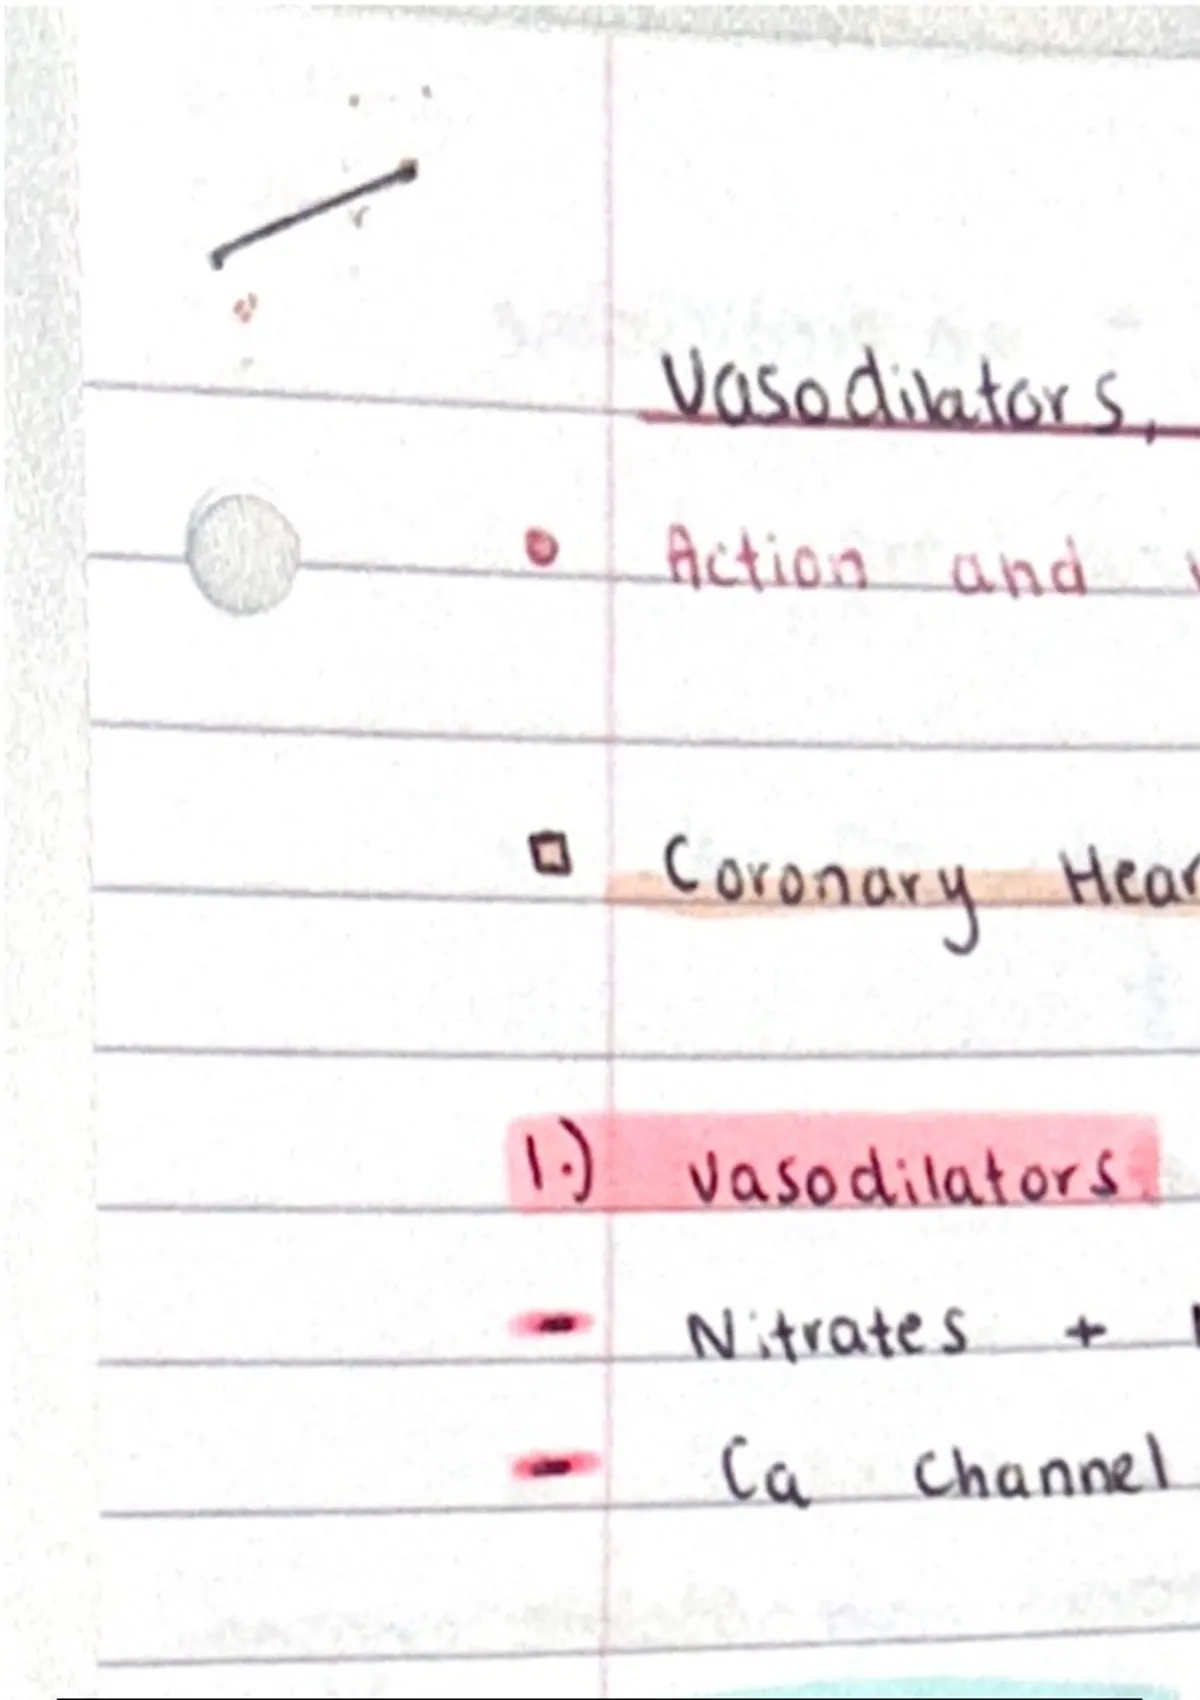 Vasodilators,
Action and
Coronary
1.) vasodilators.
Nitrates +
Ca channel